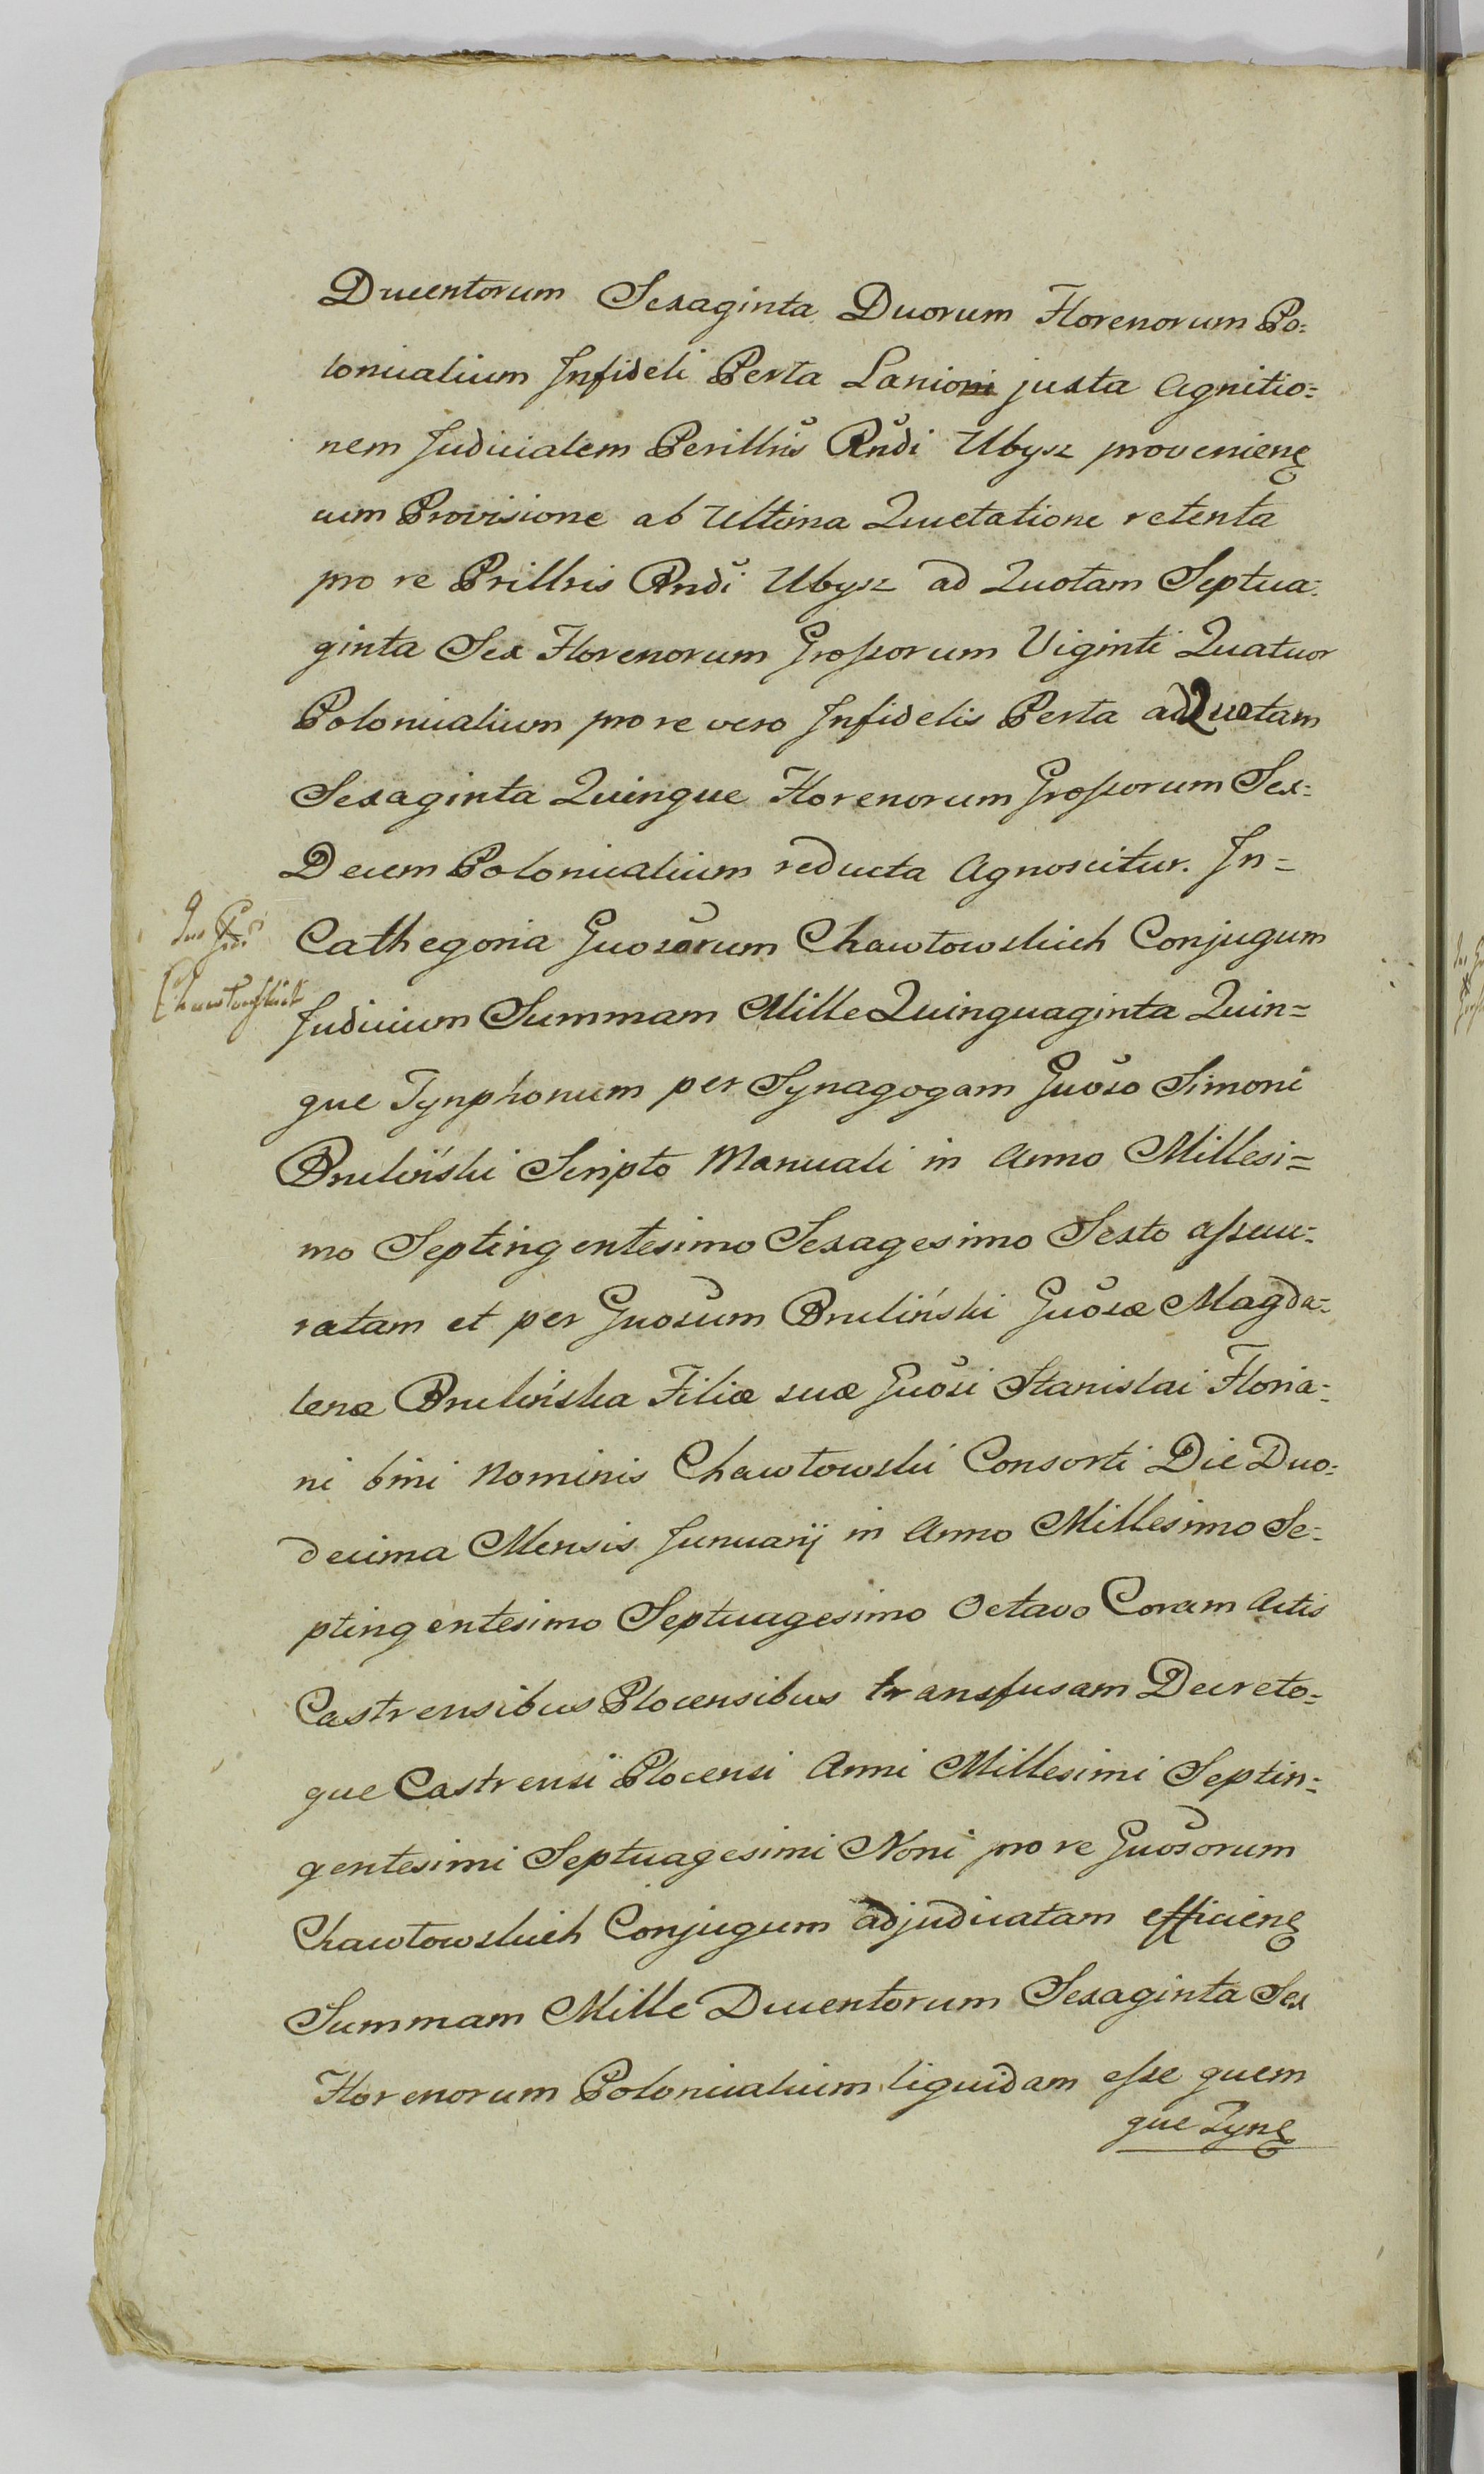 Ducentorum Sexaginta Duorum Florenorum Po=
lonicalium Infideli Perla Lanioni juxta Agnitio=
nem Judicialem Perillris Rndi Ubysz provenien
cum Provisione ab Ultima Quietatione retenta
pro re Prillris Rndi Ubysz ad Quotam Septua=
ginta Sex Florenorum Grossorum Viginti Quatuor
Polonicalium pro re vero Infidelis Perla ad Quotam
Sexaginta Quinque Florenorum Grossorum Sex=
Decem Polonicalium reducta Agnoscitur. In=
Cathegoria Gnosorum Chawtowskich Conjugum
Chawtowskich
Judicium Summam Mille Quinquaginta Quin=
que Tynphonum per Synagogam Gnoso Simoni
Brulinski Scripto Manuali in Anno Millesi=
mo Septingentesimo Sexagesimo Sexto assecu=
ratam et per Gnosum Bruliński Gnosæ Magda=
lenæ Brulińska Filiæ suæ Gnosi Stanislai Floria=
ni bini Nominis Chawtowski Consorti Die Duo=
decima Mensis Junuarij in Anno Millesimo Se=
ptingentesimo Septuagesimo Octavo Coram Actis
Castrensibus Plocensibus transfusam Decreto=
que Castrensi Plocensi Anni Millesimi Septin=
gentesimi Septuagesimi Noni pro re Gnosorum
Chawtowskich Conjugum adjudicatam efficien
Summam Mille Ducentorum Sexaginta Sex
Florenorum Polonicalium liquidam esse quem
que Tyn